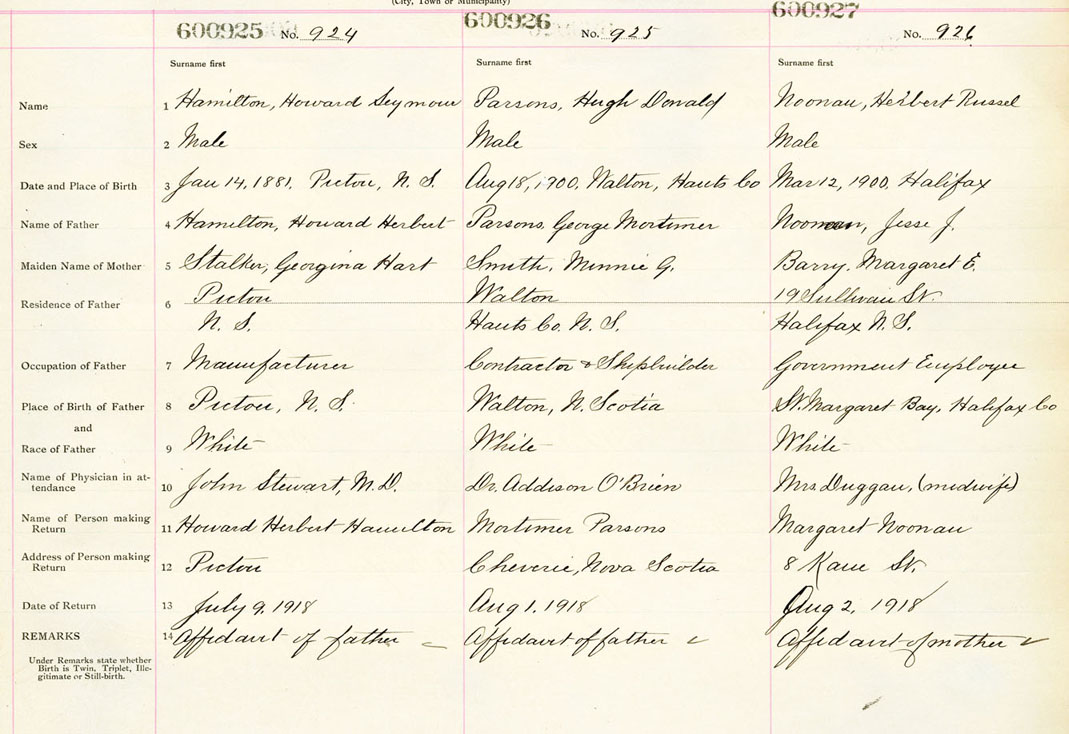 (City, Town or Municipality)
600925 No. 924 600926 No. 925 600927 No. 926
Surname first Surname first Surname first
Name 1 Hamilton, Howard Seymour Parsons, Hugh Donald Noonan, Herbert Russel
Sex 2 Male Male Male
Date and Place of Birth 3 Jan 14, 1881, Pictou, N. S. Aug 18, 1900, Walton, Hants Co Mar 12, 1900, Halifax
Name of Father 4 Hamilton, Howard Herbert Parsons, George Mortimer Noonan, Jesse J.
Maiden Name of Mother 5 Stalker, Georgina Hart Smith, Minnie G. Barry, Margaret E.
Residence of Father 6 Pictou Walton 19 Sullivan St.
N. S. Hants Co. N. S. Halifax N. S.
Occupation of Father 7 Manufacturer Contractor & Shipbuilder Government Employee
Place of Birth of Father 8 Pictou, N. S. Walton, N. Scotia St. Margaret Bay, Halifax Co
and
Race of Father 9 White White White
Name of Physician in at-
tendance 10 John Stewart, M.D. Dr. Addison O'Brien Mrs. Duggan, (midwife)
Name of Person making
Return 11 Howard Herbert Hamilton Mortimer Parsons Margaret Noonan
Address of Person making
Return 12 Pictou Cheverie, Nova Scotia 8 Kane St.
Date of Return 13 July 9, 1918 Aug 1, 1918 Aug 2, 1918
REMARKS 14 Affidavit of father Affidavit of father Affidavit of mother
Under Remarks state whether
Birth is Twin, Triplet, Ille-
gitimate or Still-birth.